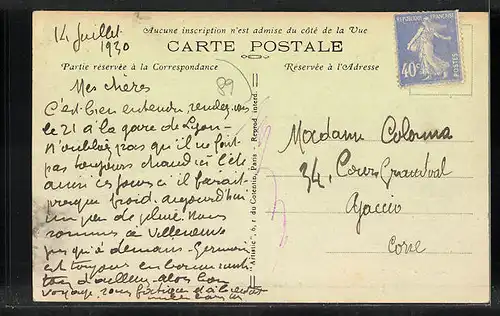 14 Juillet
1930
Aucune inscription n'est admise du côté de la Vue
CARTE POSTALE
Partie réservée à la Correspondance
Réservée à l'Adresse
RÉPUBLIQUE FRANÇAISE
40c
POSTES
89
Mes chères
C'est bien entendu rendez-vous
le 21 à la gare de Lyon -
N'oubliez pas qu'il ne fait
pas toujours chaud ici l'été
ainsi ces jours ci il faisait
presque froid. aujourd'hui
un peu de pluie. Nous
sommes à Villeneuve
jusqu'à demain - Germaine
est toujours en bonne santé
d'ailleurs. alors bon
voyage,
6, r. du Cotentin, Paris - Reprod. interd.
Madame Colonna
34, Cours Grandval
Ajaccio
Corse